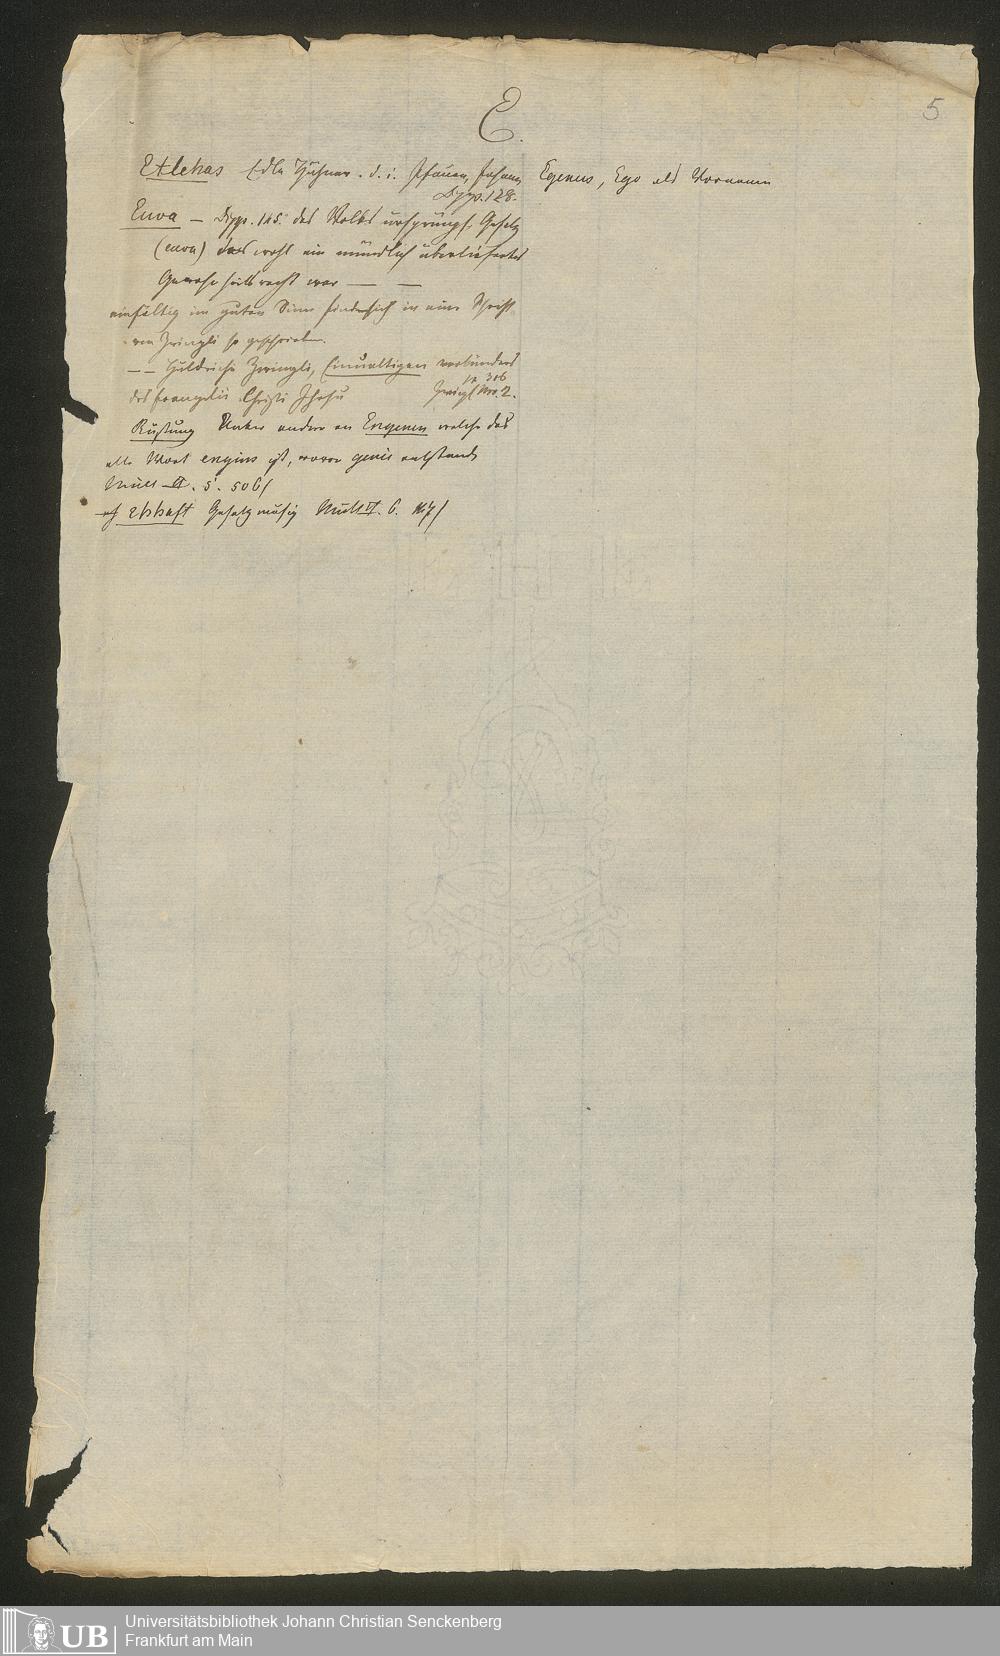 E.
5
Etlehas Edle Hühner. d. i. Pfauen, Fasanen
Dipp. 128.
Egenus, Ego als Vorname
Euva — Dipp. 145. des Volks ursprüngl. Gesetz
(euva) das wohl ein mündlich überliefertes
Gewohnheitsrecht war — —
einfältig im guten Sinn findet sich in einer Schrift
von Zwingli so geschrieben.
— — Huldreichs Zwingli, Einualtigen verkünders
des Evangelii Christi Jhesu
306
No. 2.
Rüstung Unter andern an Engenen welche das
alte Wort engins ist, wovon genie entstand
Müll II. 5. 506/
Ehhaft Gesetzmäsig Müll II. 6. 167/
Universitätsbibliothek Johann Christian Senckenberg
Frankfurt am Main
UB